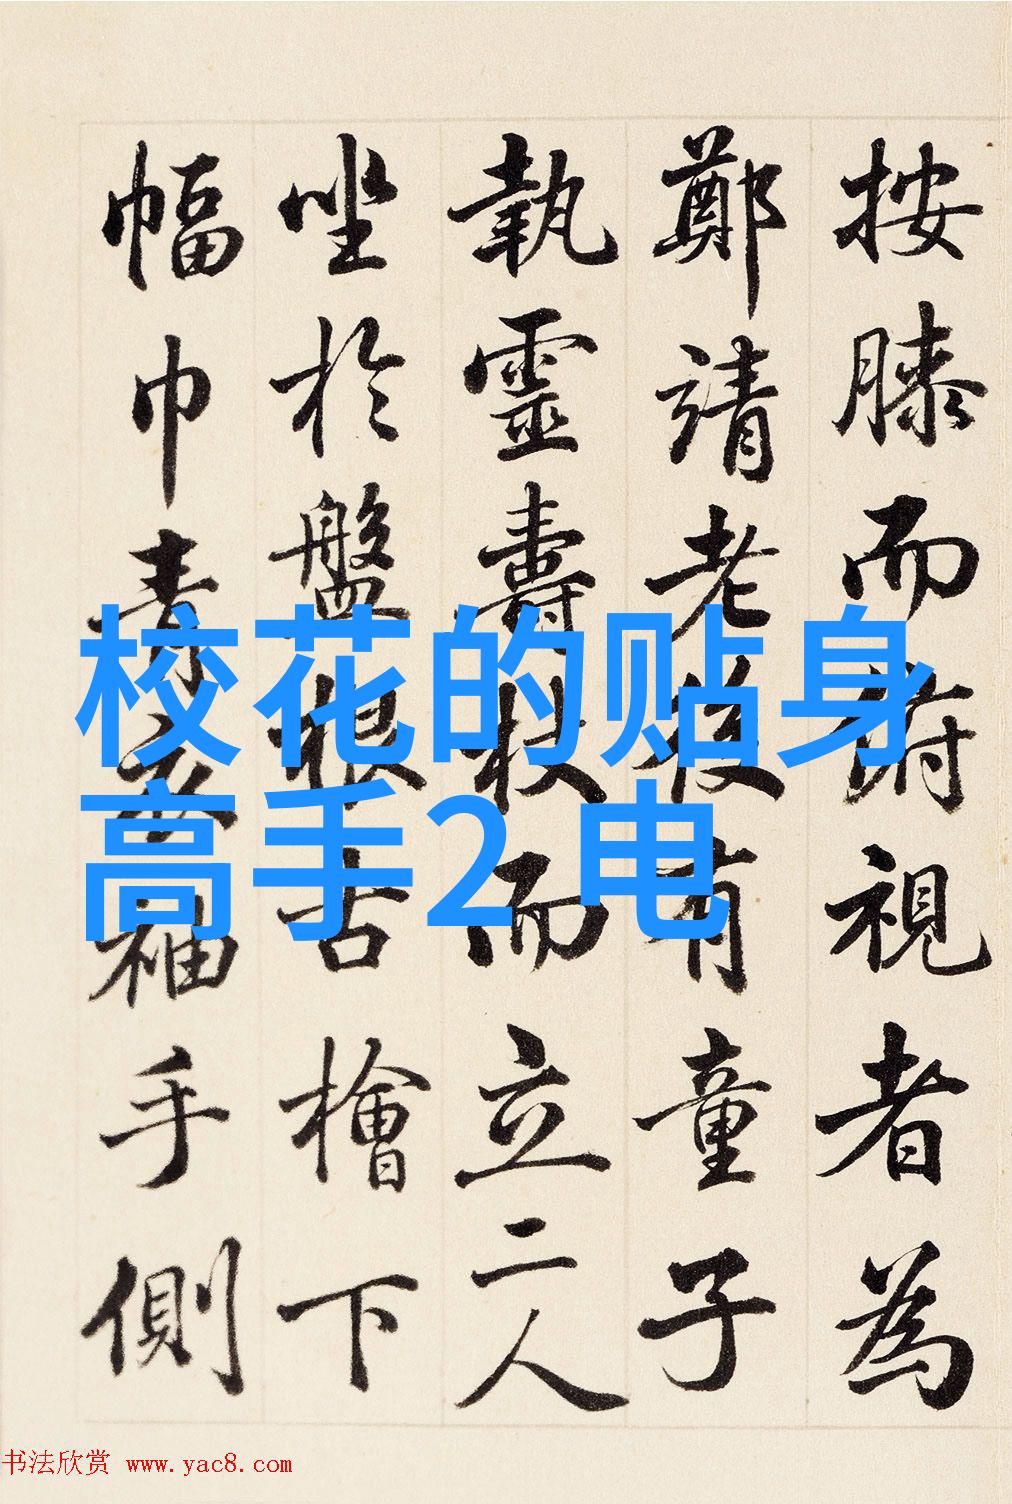 按膝而俯視者為
鄭靖老後有童子
執靈壽杖而立二人
坐於盤根古檜下
幅巾青衣袖手側
校花的贴身
高手2 电
书法欣赏 www.yac8.com